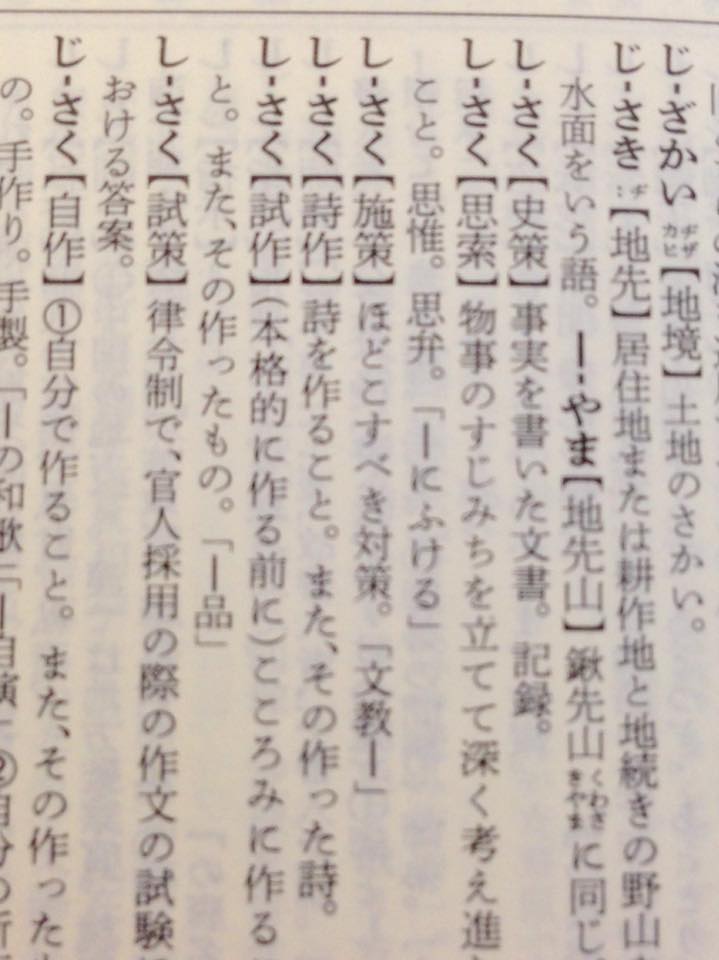 じ‐ざかい ヂザカヒ【地境】土地のさかい。
じ‐さき ヂ‥【地先】居住地または耕作地と地続きの野山
水面をいう語。 ー‐やま【地先山】鍬先山くわさきやまに同じ。
し‐さく【史策】事実を書いた文書。記録。
し‐さく【思索】物事のすじみちを立てて深く考え進
こと。思惟。思弁。「ーにふける」
し‐さく【施策】ほどこすべき対策。「文教ー」
し‐さく【詩作】詩を作ること。また、その作った詩。
し‐さく【試作】(本格的に作る前に)こころみに作る
と。また、その作ったもの。「ー品」
し‐さく【試策】律令制で、官人採用の際の作文の試験に
おける答案。
じ‐さく【自作】①自分で作ること。また、その作った
の。手作り。手製。「ーの和歌」「ー自演」②自分の所